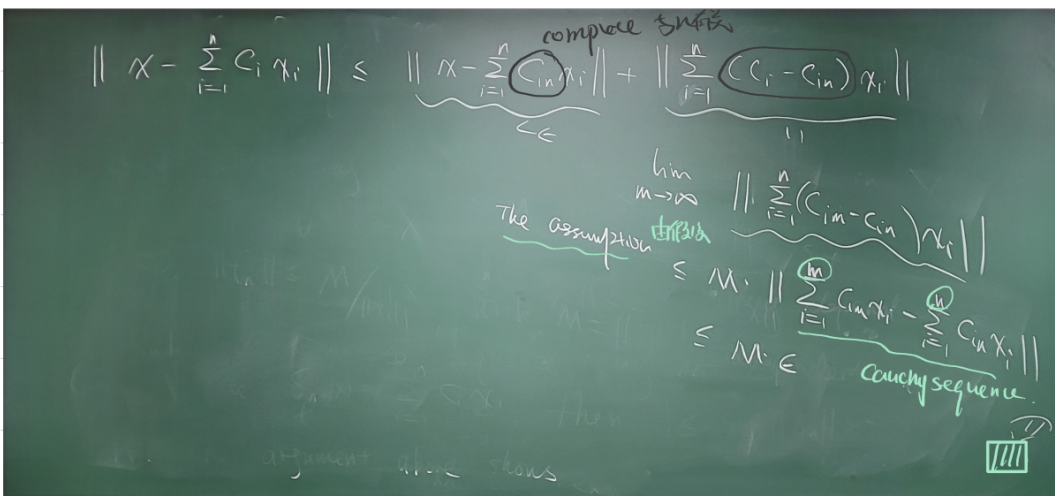 complete
‖ x - Σ_{i=1}^{n} C_i x_i ‖ ≤ ‖ x - Σ_{i=1}^{n} C_{in} x_i ‖ + ‖ Σ_{i=1}^{n} (C_i - C_{in}) x_i ‖
< ε
lim_{m→∞} ‖ Σ_{i=1}^{n} (C_{im} - C_{in}) x_i ‖
The assumption
≤ M · ‖ Σ_{i=1}^{m} C_{im} x_i - Σ_{i=1}^{n} C_{in} x_i ‖
≤ M · ε
Cauchy sequence.
argument above shows